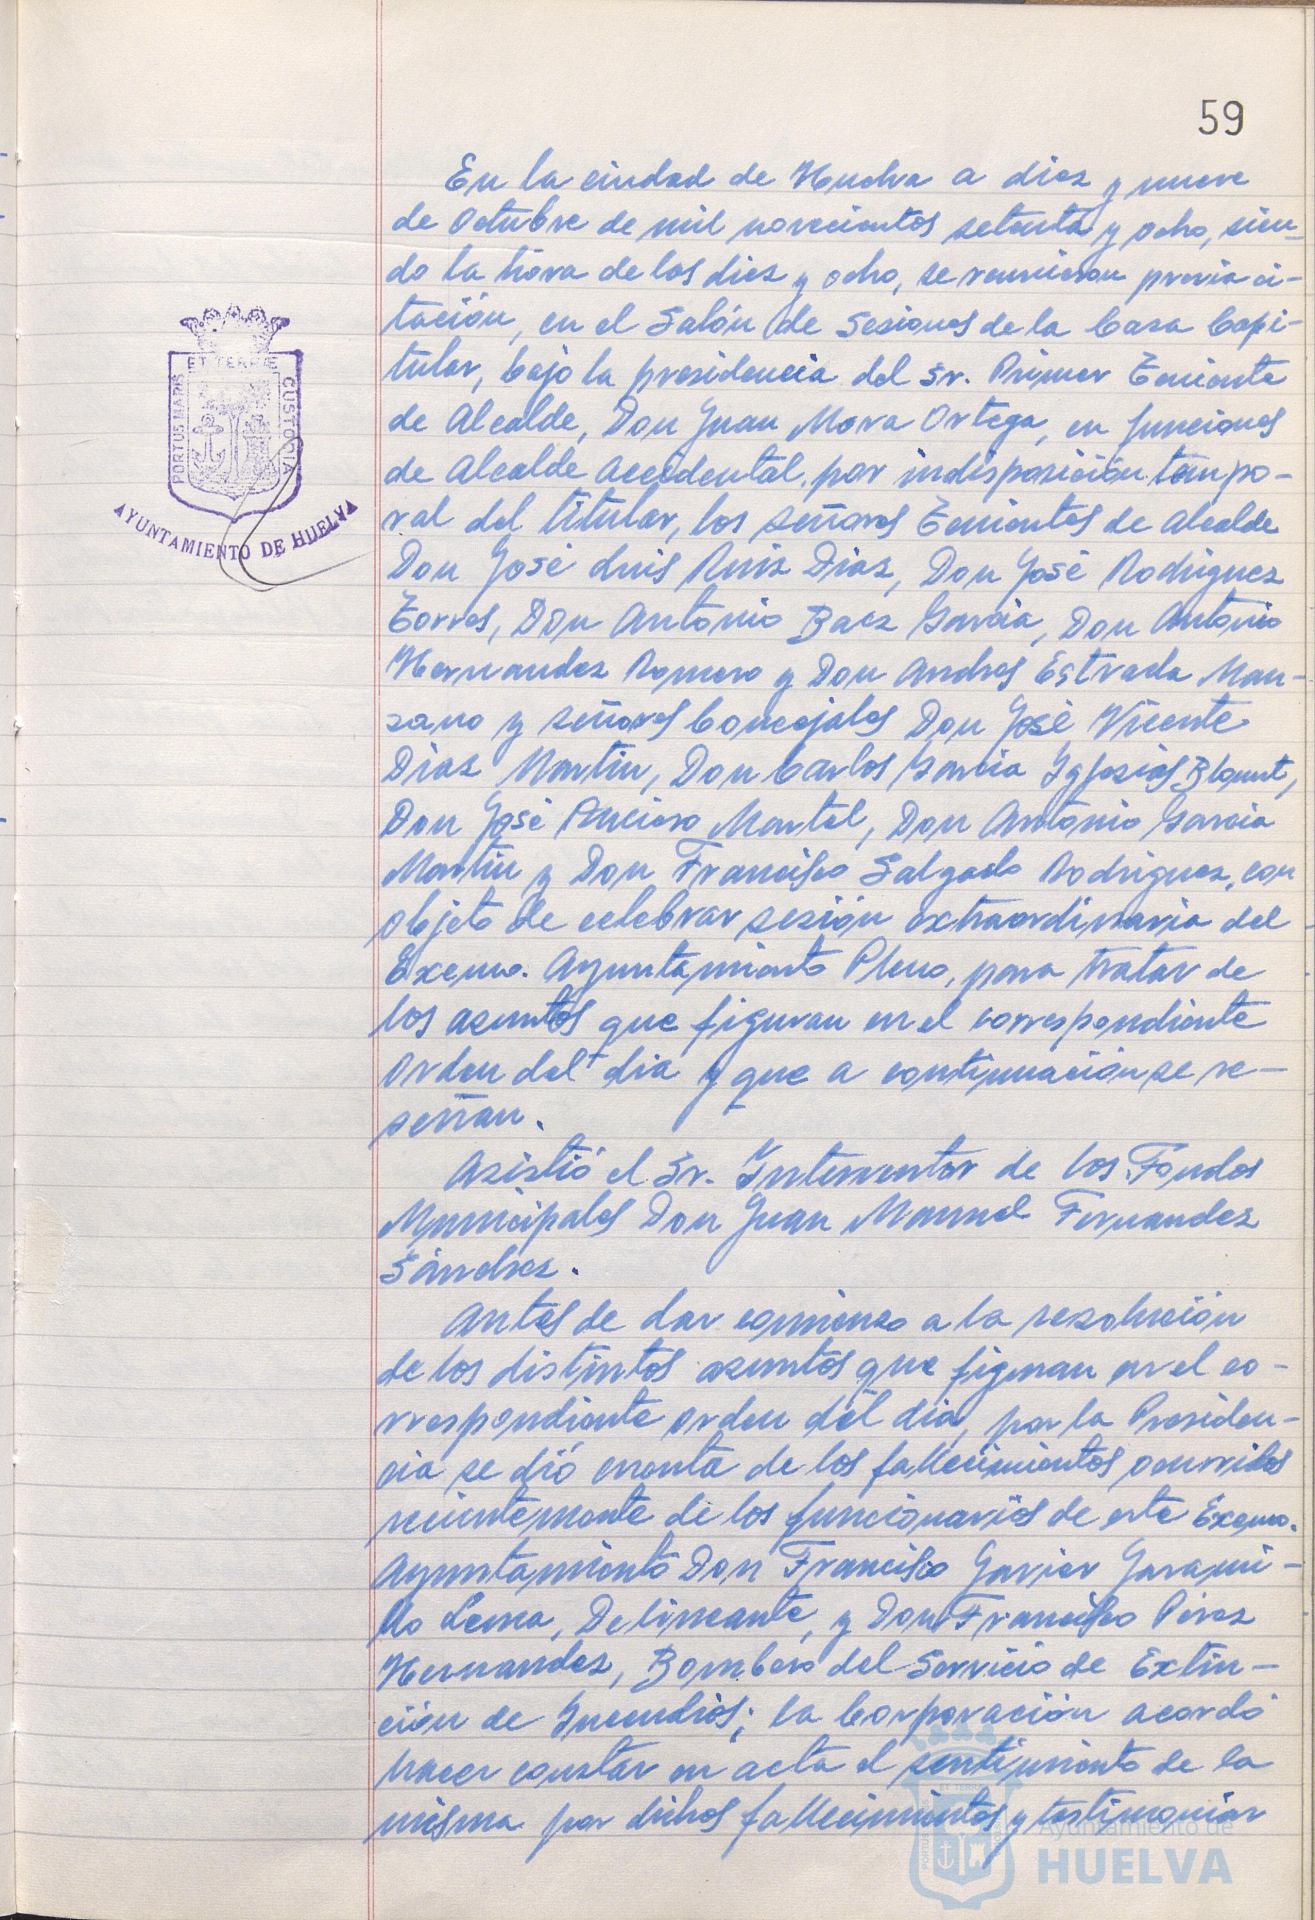 59
En la ciudad de Huelva a diez y nueve
de Octubre de mil novecientos setenta y ocho, sien-
do la hora de las diez y ocho, se reunieron previa ci-
tación, en el Salón de Sesiones de la Casa Capi-
tular, bajo la presidencia del Sr. Primer Teniente
de Alcalde, Don Juan Mora Ortega, en funciones
de Alcalde Accidental, por indisposición tempo-
ral del titular, los señores Tenientes de Alcalde
Don José Luis Ruiz Diaz, Don José Rodriguez
Torres, Don Antonio Baez Garcia, Don Antonio
Hernandez Romero y Don Andres Estrada Man-
zano y señores Concejales Don José Vicente
Diaz Martin, Don Carlos Garcia Yglesias Blount,
Don José Martel, Don Antonio Garcia
Martin y Don Francisco Salgado Rodriguez, con
objeto de celebrar sesión extraordinaria del
Excmo. Ayuntamiento Pleno, para tratar de
los asuntos que figuran en el correspondiente
Orden del dia y que a continuación se re-
señan.
Asistió el Sr. Interventor de los Fondos
Municipales Don Juan Manuel Fernandez
Sánchez.
Antes de dar comienzo a la resolución
de los distintos asuntos que figuran en el co-
rrespondiente orden del dia, por la Presiden-
cia se dió cuenta de los fallecimientos ocurridos
recientemente de los funcionarios de este Excmo.
Ayuntamiento Don Francisco Javier Jarami-
llo Lema, Delineante, y Don Francisco Pérez
Hernandez, Bombero del Servicio de Extin-
ción de Incendios; la Corporación acordó
hacer constar en acta el sentimiento de la
misma por dichos fallecimientos y testimoniar
PORTUS MARIS
ET TERRÆ
CUSTODIA
AYUNTAMIENTO DE HUELVA
Ayuntamiento de
HUELVA